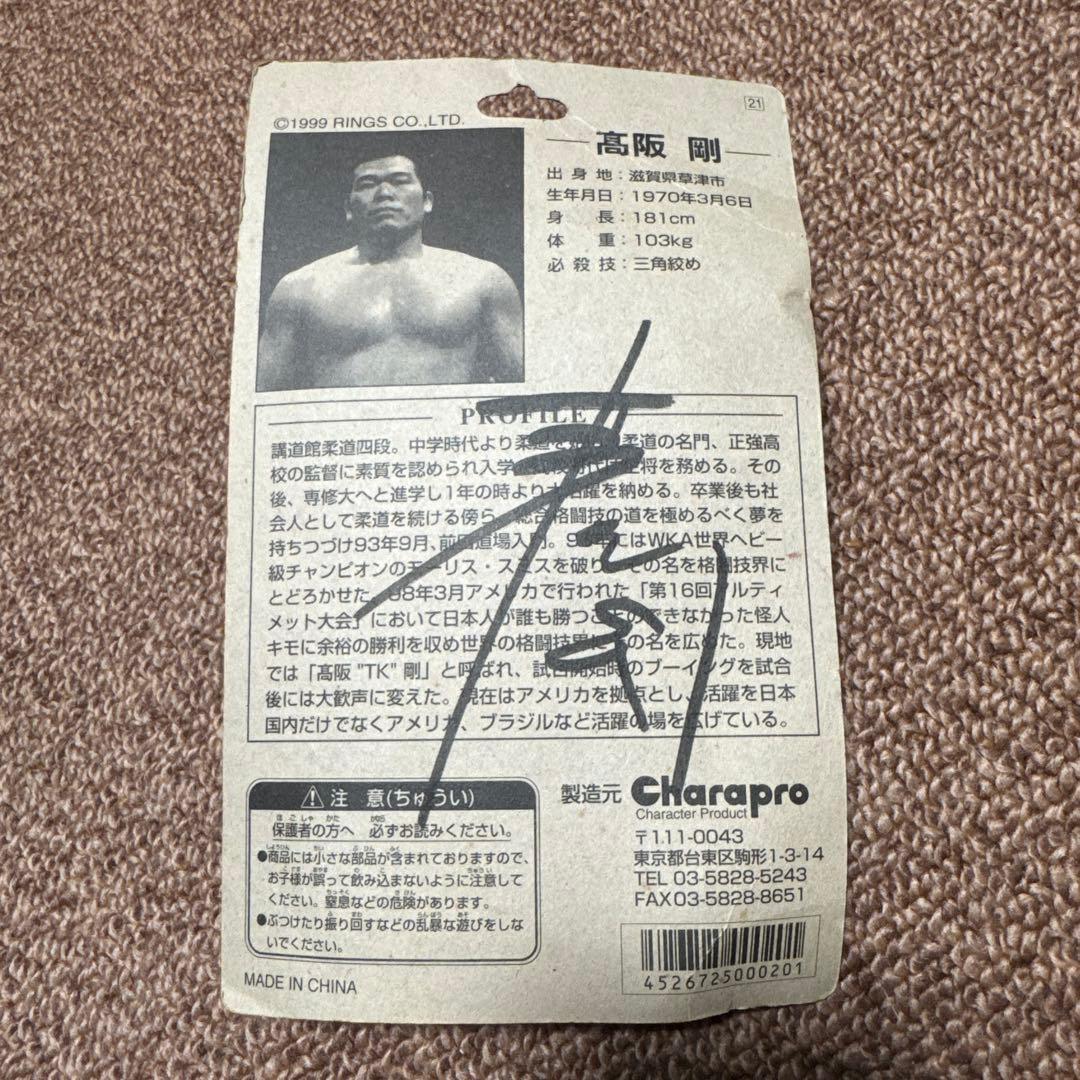 21
©1999 RINGS CO.,LTD.
髙阪 剛
出身地：滋賀県草津市
生年月日：1970年3月6日
身長：181cm
体重：103kg
必殺技：三角絞め
PROFILE
講道館柔道四段。中学時代より柔道を 柔道の名門、正強高
校の監督に素質を認められ入学 将を務める。その
後、専修大へと進学し1年の時より大活躍を納める。卒業後も社
会人として柔道を続ける傍ら、総合格闘技の道を極めるべく夢を
持ちつづけ93年9月、前田道場入門。9 年にはWKA世界ヘビー
級チャンピオンのモーリス・スミスを破り、その名を格闘技界に
とどろかせた。98年3月アメリカで行われた「第16回アルティ
メット大会」において日本人が誰も勝つことのできなかった怪人
キモに余裕の勝利を収め世界の格闘技界にその名を広めた。現地
では「髙阪 "TK" 剛」と呼ばれ、試合開始時のブーイングを試合
後には大歓声に変えた。現在はアメリカを拠点とし、活躍を日本
国内だけでなくアメリカ、ブラジルなど活躍の場を広げている。
注 意(ちゅうい)
保護者の方へ 必ずお読みください。
●商品には小さな部品が含まれておりますので、
お子様が誤って飲み込まないように注意して
ください。窒息などの危険があります。
●ぶつけたり振り回すなどの乱暴な遊びをしな
いでください。
MADE IN CHINA
製造元 Charapro
Character Product
〒111-0043
東京都台東区駒形1-3-14
TEL 03-5828-5243
FAX03-5828-8651
4526725000201